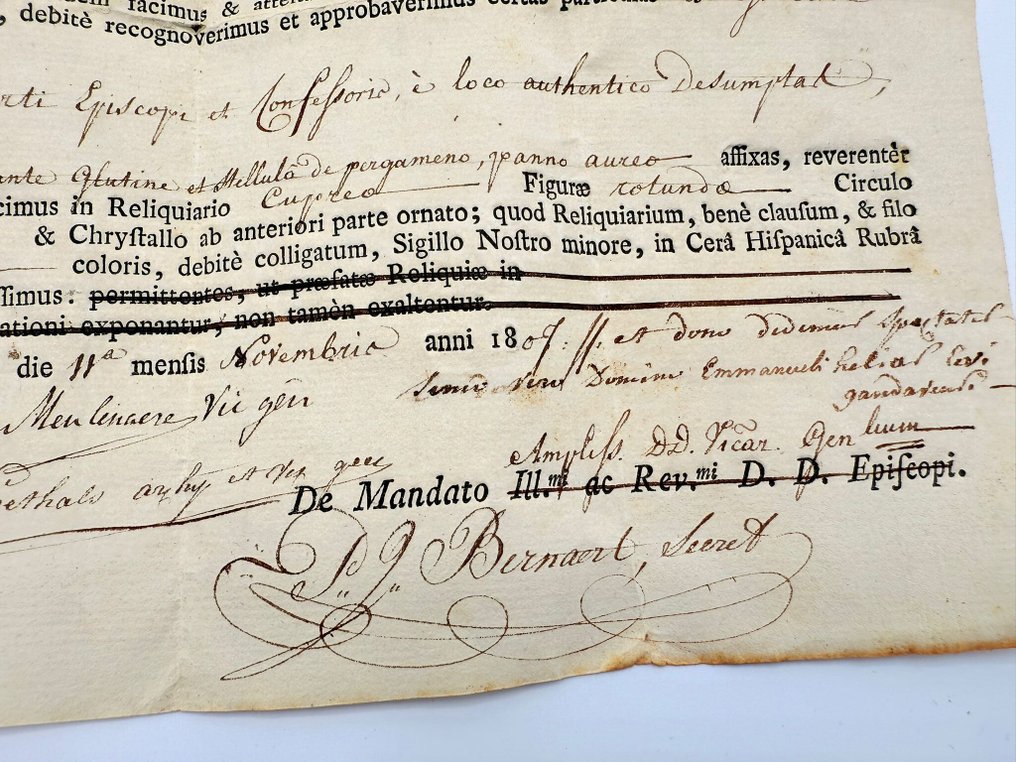 facimus &
, debitè recognoverimus et approbaverimus certas
Episcopi et Confessoris, è loco authentico Desumptas,
glutine et stellulâ de pergameno, panno aureo affixas, reverentèr
cimus in Reliquiario Cupreo Figuræ rotundæ Circulo
& Chryſtallo ab anteriori parte ornato; quod Reliquiarium, benè clauſum, & filo
coloris, debitè colligatum, Sigillo Noſtro minore, in Cerâ Hiſpanicâ Rubrâ
ſſimus: permittentes, ut præfatæ Reliquiæ in
ationi exponantur, non tamèn exaltentur.
die 11a menſis Novembris anni 1807. et dono dedimus
Domino Emmanueli
gandavensi
Meulenaere Vic gen
Ampliss. D.D. Vicar. Gen
De Mandato Ill.mi ac Rev.mi D. D. Epiſcopi.
Bernaert, Secret